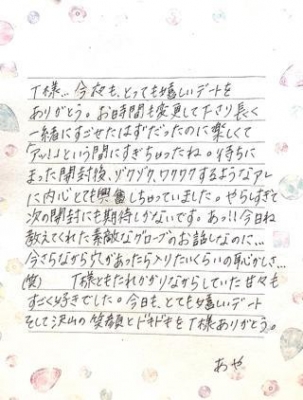 T様… 今夜も、とっても嬉しいデートを
ありがとう。お時間も変更して下さり長く
一緒にすごせたはずだったのに楽しくて
「アッ!」という間にすぎちゃったね。待ちに
まった開封後、ゾクゾク、ワクワクするようなアレ
に内心とても興奮しちゃっていました。やらしすぎて
次の開封にも期待しかないです。あっ!!今日ね
教えてくれた素敵なグローブのお話しなのに…
今さらながら穴があったら入りたいくらいの恥かしさ…
(笑) T様ともたれかかりながらしていた甘々も
すごく好きでした。今日も、とても嬉しいデート
そして沢山の笑顔とドキドキをT様ありがとう。
あや